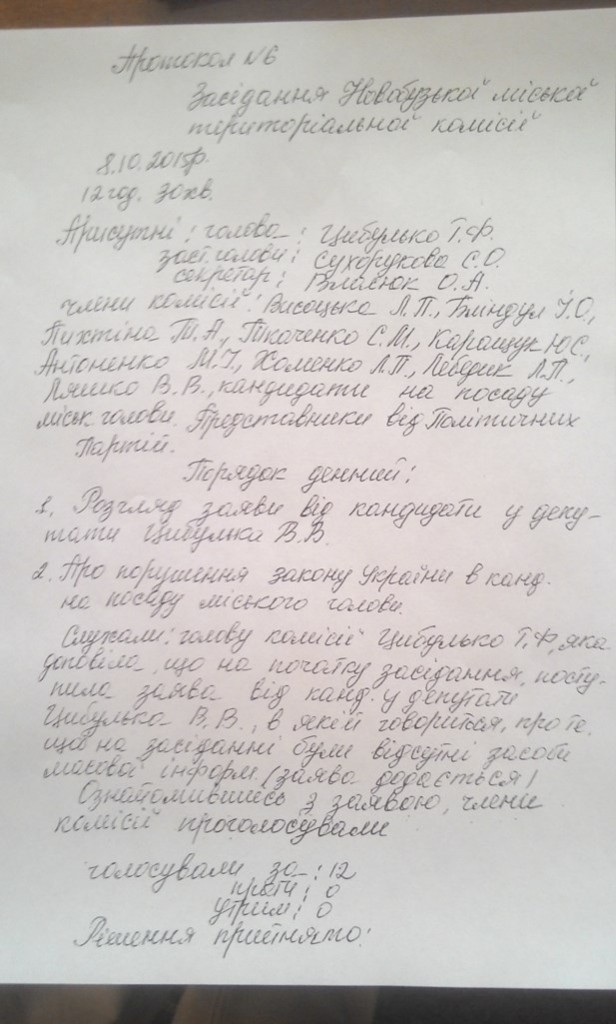 Протокол №6
Засідання Новобузької міської
територіальної комісії
8.10.2015р.
12 год. 30хв.
Присутні: голова-: Цибулько Т.Ф.
заст.голови: Сухорукова С.О.
секретар: Власюк О.А.
члени комісії: Висоцька Л.П., Бліндул І.О.,
Пихтіна Т.А., Ткаченко С.М., Каращук Ю.С.,
Антоненко М.І., Хоменко Л.П., Лебедик Л.П.,
Ляшко В.В., кандидати на посаду
міськ.голови. Представники від Політичних
Партій.
Порядок денний:
1. Розгляд заяви від кандидати у депу-
тати Цибулька В.В.
2. Про порушення закону України в канд.
на посаду міського голови.
Слухали: голову комісії Цибулько Т.Ф, яка
доповіла, що на початку засідання, посту-
пила заява від канд. у депутати
Цибулька В.В., в якій говориться, про те,
що на засіданні були відсутні засоби
масової інформ. (заява додається)
Ознайомившись з заявою, члени
комісії проголосували
голосували за-: 12
проти: 0
утрим: 0
Рішення прийнято: